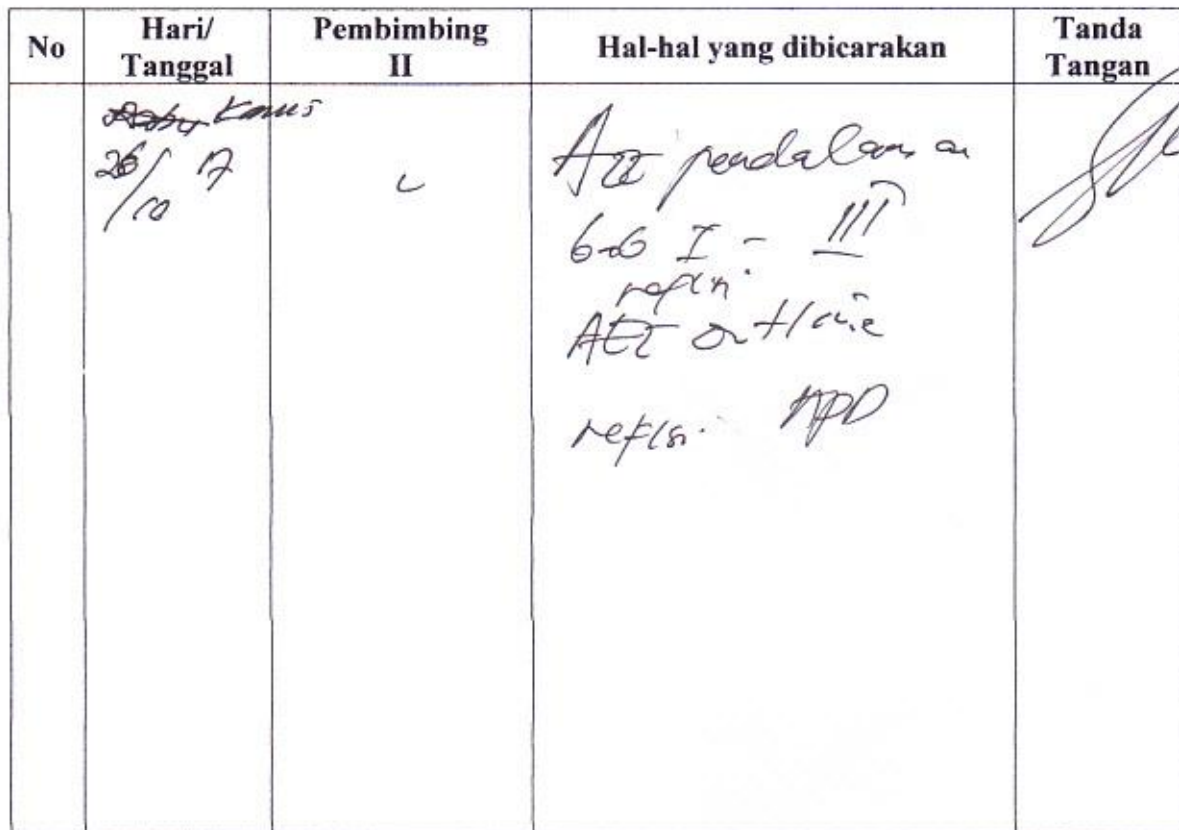 No Hari/ Tanggal Pembimbing II Hal-hal yang dibicarakan Tanda Tangan
Kamis
26/10 17
Acc pendalaman
bab I - III
Acc outline
APD